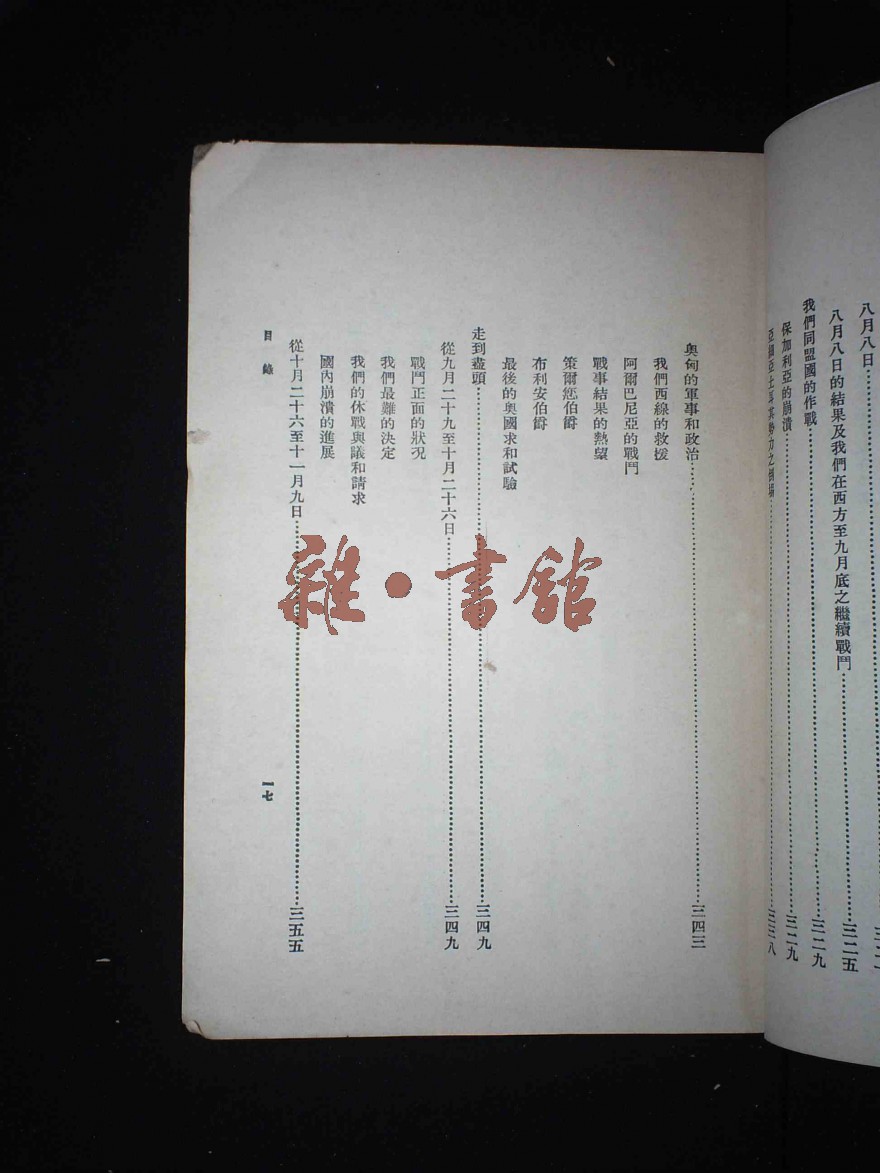 八月八日
八月八日的結果及我們在西方至九月底之繼續戰鬥……三二五
我們同盟國的作戰……三二九
保加利亞的崩潰……三二九
亞細亞土耳其勢力之……三三八
奧匈的軍事和政治……三四三
我們西線的救援
阿爾巴尼亞的戰鬥
戰事結果的熱望
策爾您伯爵
布利安伯爵
最後的奧國求和試驗
走到盡頭……三四九
從九月二十九至十月二十六日……三四九
戰鬥正面的狀況
我們最難的決定
我們的休戰與議和請求
國內崩潰的進展
從十月二十六至十一月九日……三五五
目錄
一七
雜·書館